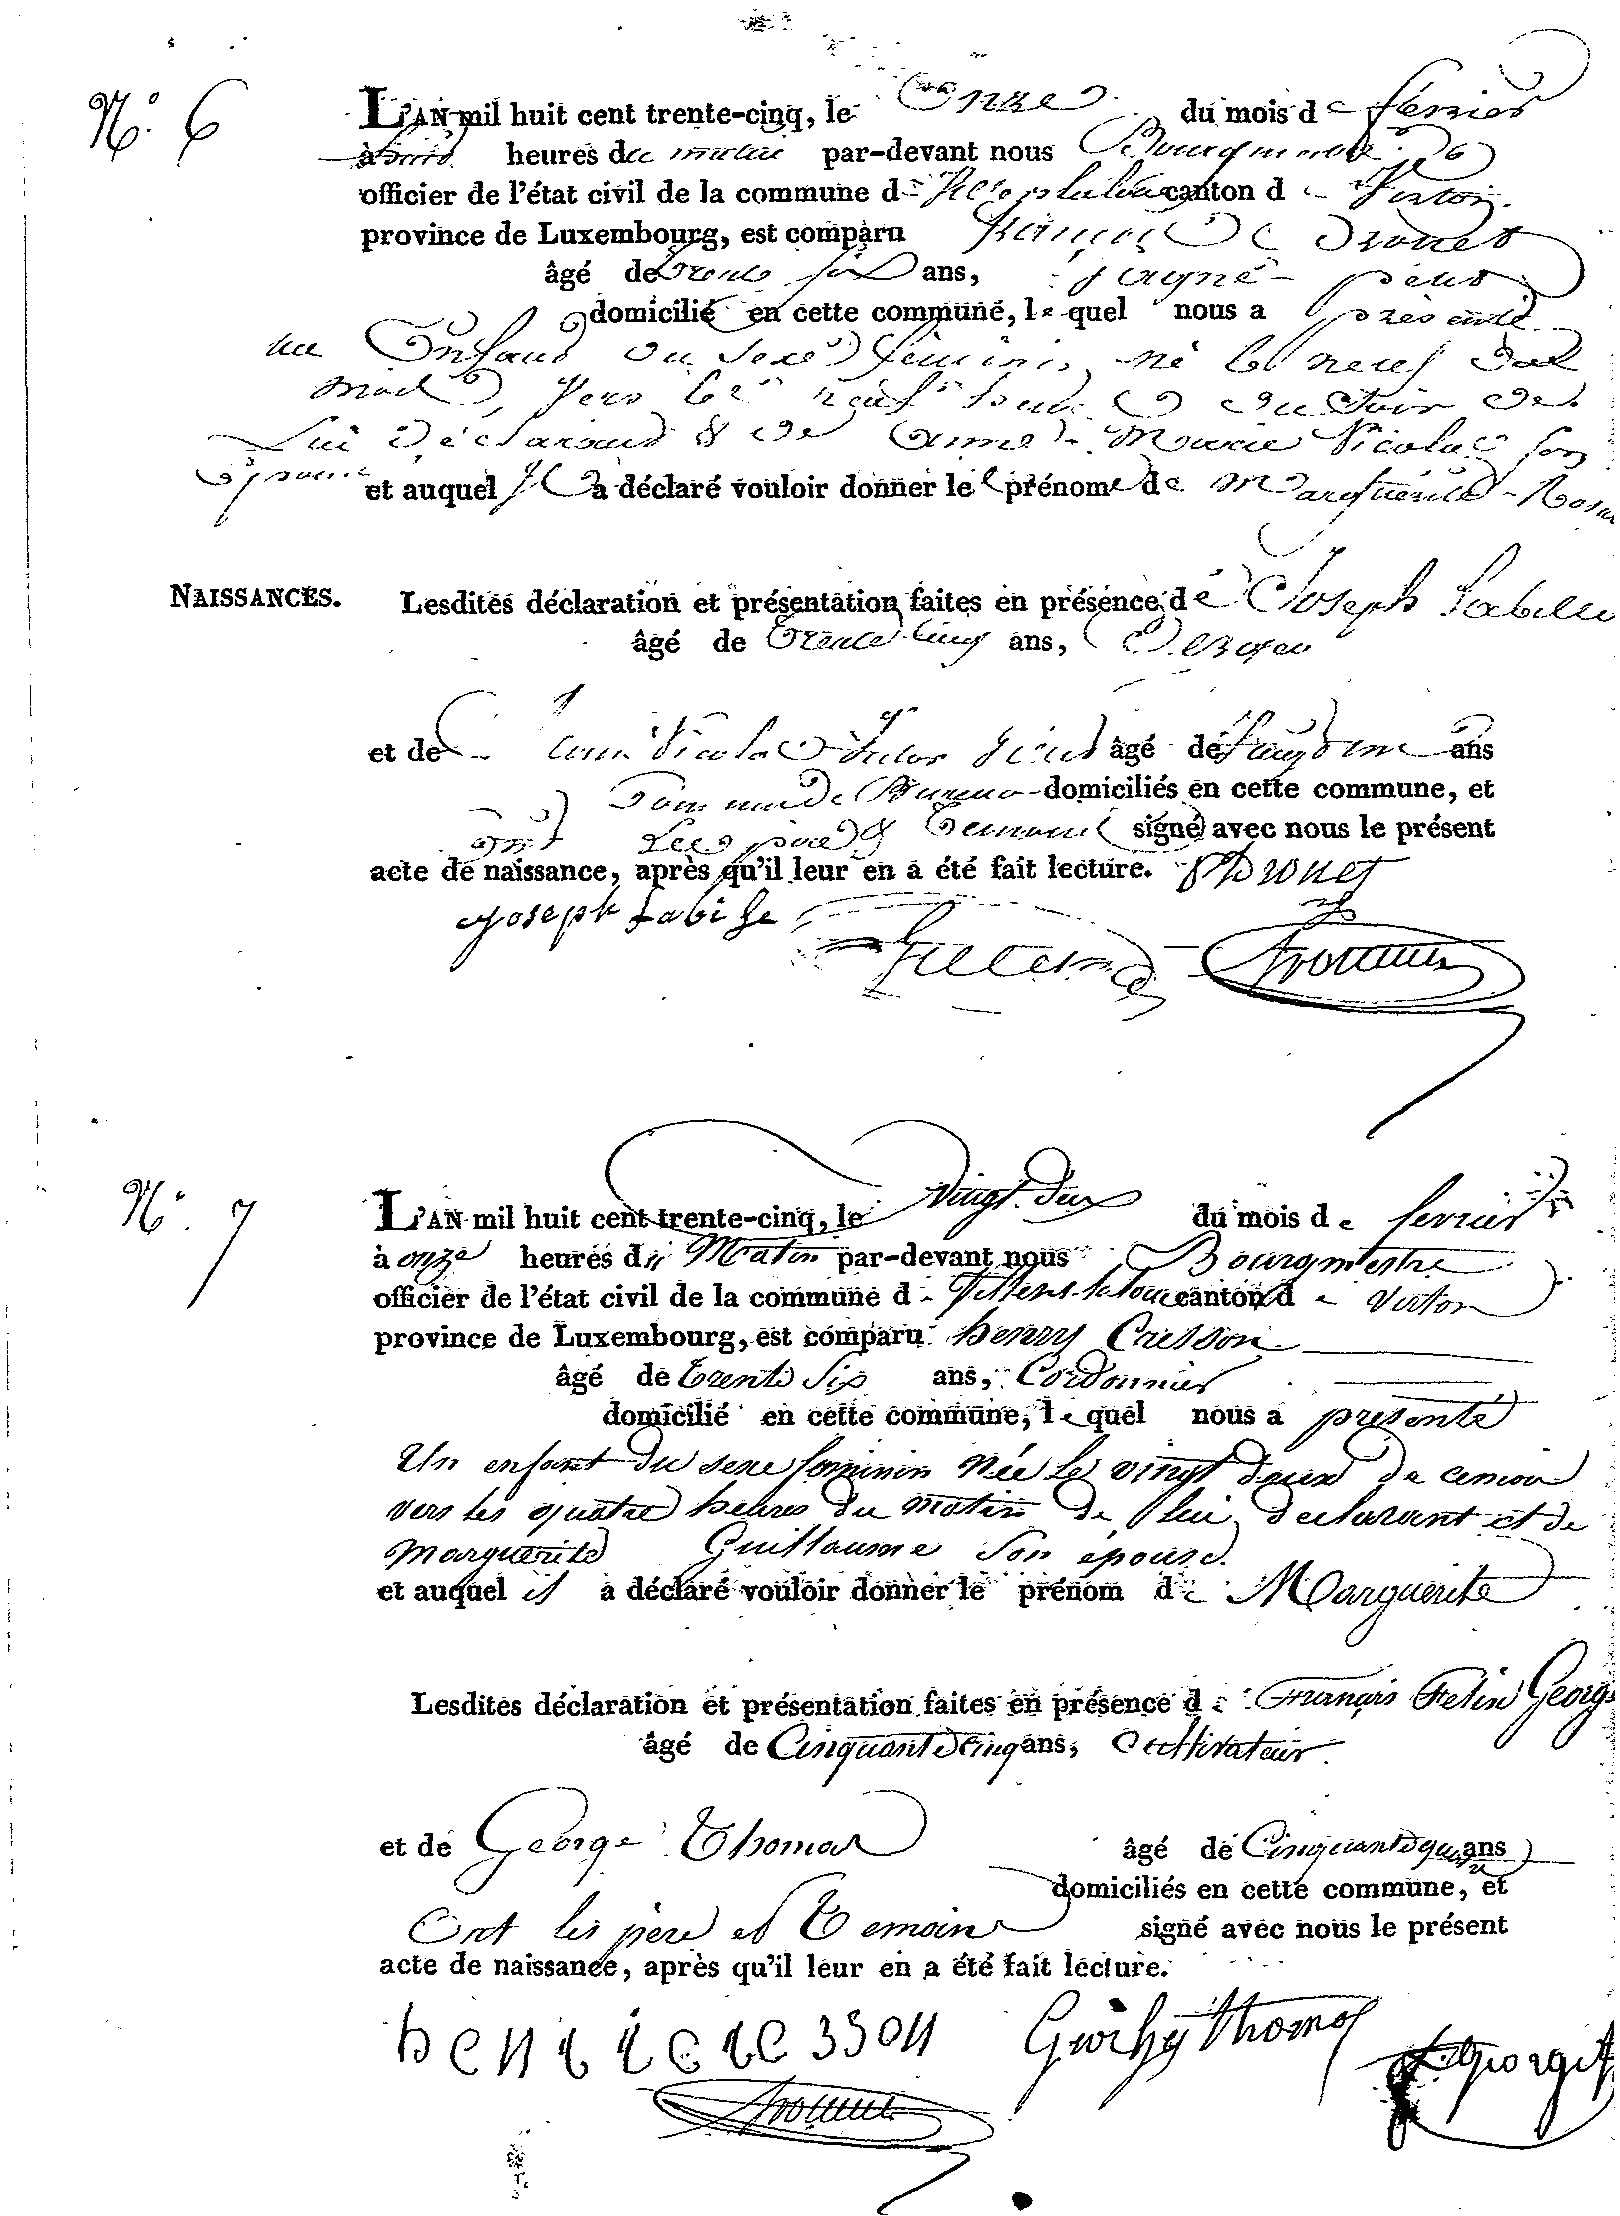 N.° 6
L'AN mil huit cent trente-cinq, le Onze du mois de fevrier
à heures du matin par-devant nous Bourgmestre
officier de l'état civil de la commune d canton de Virton
province de Luxembourg, est comparu François Drouet
âgé de trente six ans,
domicilié en cette commune, lequel nous a présenté
un Enfant du sexe féminin, né le neuf du
mois, vers les neuf heures du soir de
lui déclarant & de Anne-Marie Nicolas son
Epouse et auquel Il a déclaré vouloir donner le prénom de Marguerite-Rosa
NAISSANCES.
Lesdites déclaration et présentation faites en présence de Joseph
âgé de trente cinq ans,
et de Nicolas âgé de ans
domiciliés en cette commune, et
ont Les père & Temoins signé avec nous le présent
acte de naissance, après qu'il leur en a été fait lecture. Drouet
Joseph Labisse
N.° 7
L'AN mil huit cent trente-cinq, le vingt deux du mois de fevrier
à onze heures du Matin par-devant nous Bourgmestre
officier de l'état civil de la commune de Villers-la-loue canton de Virton
province de Luxembourg, est comparu henry Cresson
âgé de trente six ans, Cordonnier
domicilié en cette commune, lequel nous a présenté
Un enfant du sexe feminin née le vingt deux de ce mois
vers les quatre heures du matin de lui declarant et de
Marguerite Guillaume son épouse.
et auquel il a déclaré vouloir donner le prénom de Marguerite
Lesdites déclaration et présentation faites en présence de François George
âgé de Cinquante cinq ans, Cultivateur
et de George Thomas âgé de Cinquante quatre ans
domiciliés en cette commune, et
Ont les père et Temoins signé avec nous le présent
acte de naissance, après qu'il leur en a été fait lecture.
Thomas